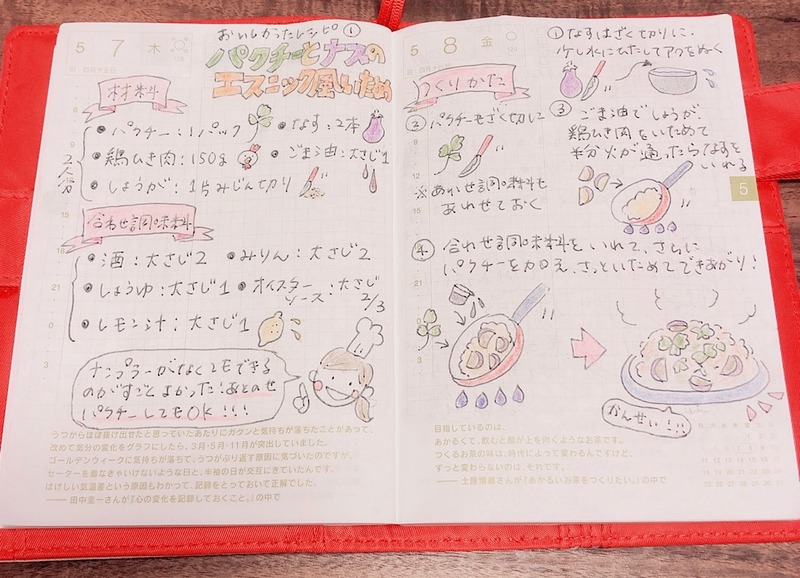 5 7 木
おいしかったレシピ①
パクチーとナスの
エスニック風いため
材料
2人分
パクチー：1パック
なす：2本
鶏ひき肉：150g
ごま油：大さじ1
しょうが：1片みじん切り
合わせ調味料
酒：大さじ2
みりん：大さじ2
しょうゆ：大さじ1
オイスターソース：大さじ2/3
レモン汁：大さじ1
ナンプラーがなくてもできる
のがすごくよかった！あとのせ
パクチーしてもOK！！！
うつからほぼ抜け出せたと思っていたあたりにガクンと気持ちが落ちたことがあって、
改めて気分の変化をグラフにしたら、3月・5月・11月が突出していました。
ゴールデンウィークに気持ちが落ちて、うつがぶり返す原因に気づいたのですが、
セーターを着なきゃいけないような日と、半袖の日が交互にきていたんです。
はげしい気温差という原因もわかって、記録をとっておいて正解でした。
──田中圭一さんが『心の変化を記録しておくこと。』の中で
5 8 金
つくりかた
①なすはざく切りに、
少し水にひたしてアクをぬく
②パクチーをざく切りに
※あわせ調味料も
あわせておく
③ごま油でしょうが、
鶏ひき肉をいためて
半分火が通ったらなすを
いれる
5
④合わせ調味料をいれて、さらに
パクチーを加え、さっといためてできあがり！
かんせい！！
目指しているのは、
あかるくて、飲むと顔が上を向くようなお茶です。
つくるお茶の味は、時代によって変わるんですけど、
ずっと変わらないのは、それです。
──土屋博義さんが『あかるいお茶をつくりたい。』の中で